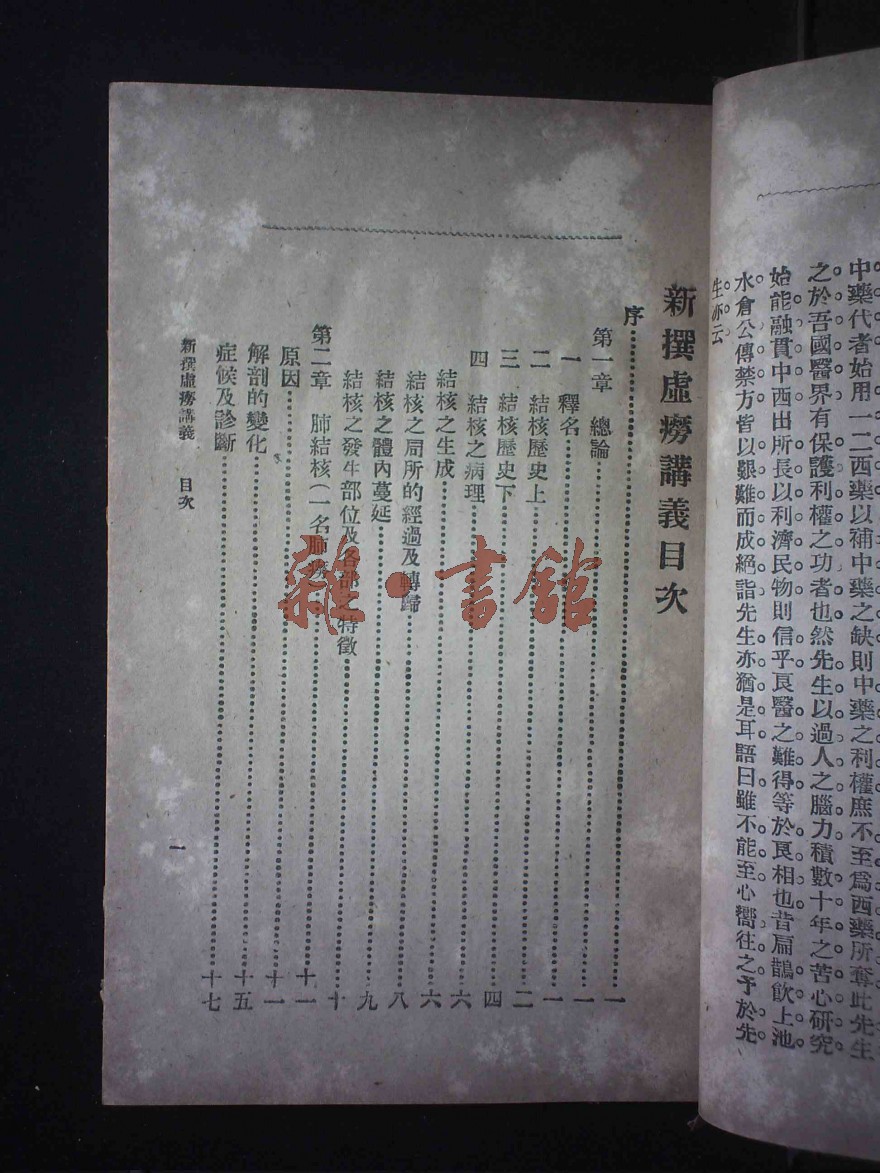 中藥代者始用一二西藥以補中藥之缺則中藥之利權庶不至爲西藥所奪此先生
之於吾國醫界有保護利權之功者也然先生以過人之腦力積數十年之苦心研究
始能融貫中西出所長以利濟民物則信乎良醫之難得等於良相也昔扁鵲飲上池
水倉公傳禁方皆以艱難而成絕詣先生亦猶是耳語曰雖不能至心嚮往之予於先
生亦云
新撰虛癆講義目次
序 一
第一章 總論 一
一 釋名 一
二 結核歷史上 二
三 結核歷史下 四
四 結核之病理 六
結核之生成 六
結核之局所的經過及轉歸 八
結核之體內蔓延 九
結核之發生部位及各部之特徵 十
第二章 肺結核(一名肺癆) 十一
原因 十一
解剖的變化 十五
症候及診斷 十七
新撰虛癆講義 目次
一
雜·書館